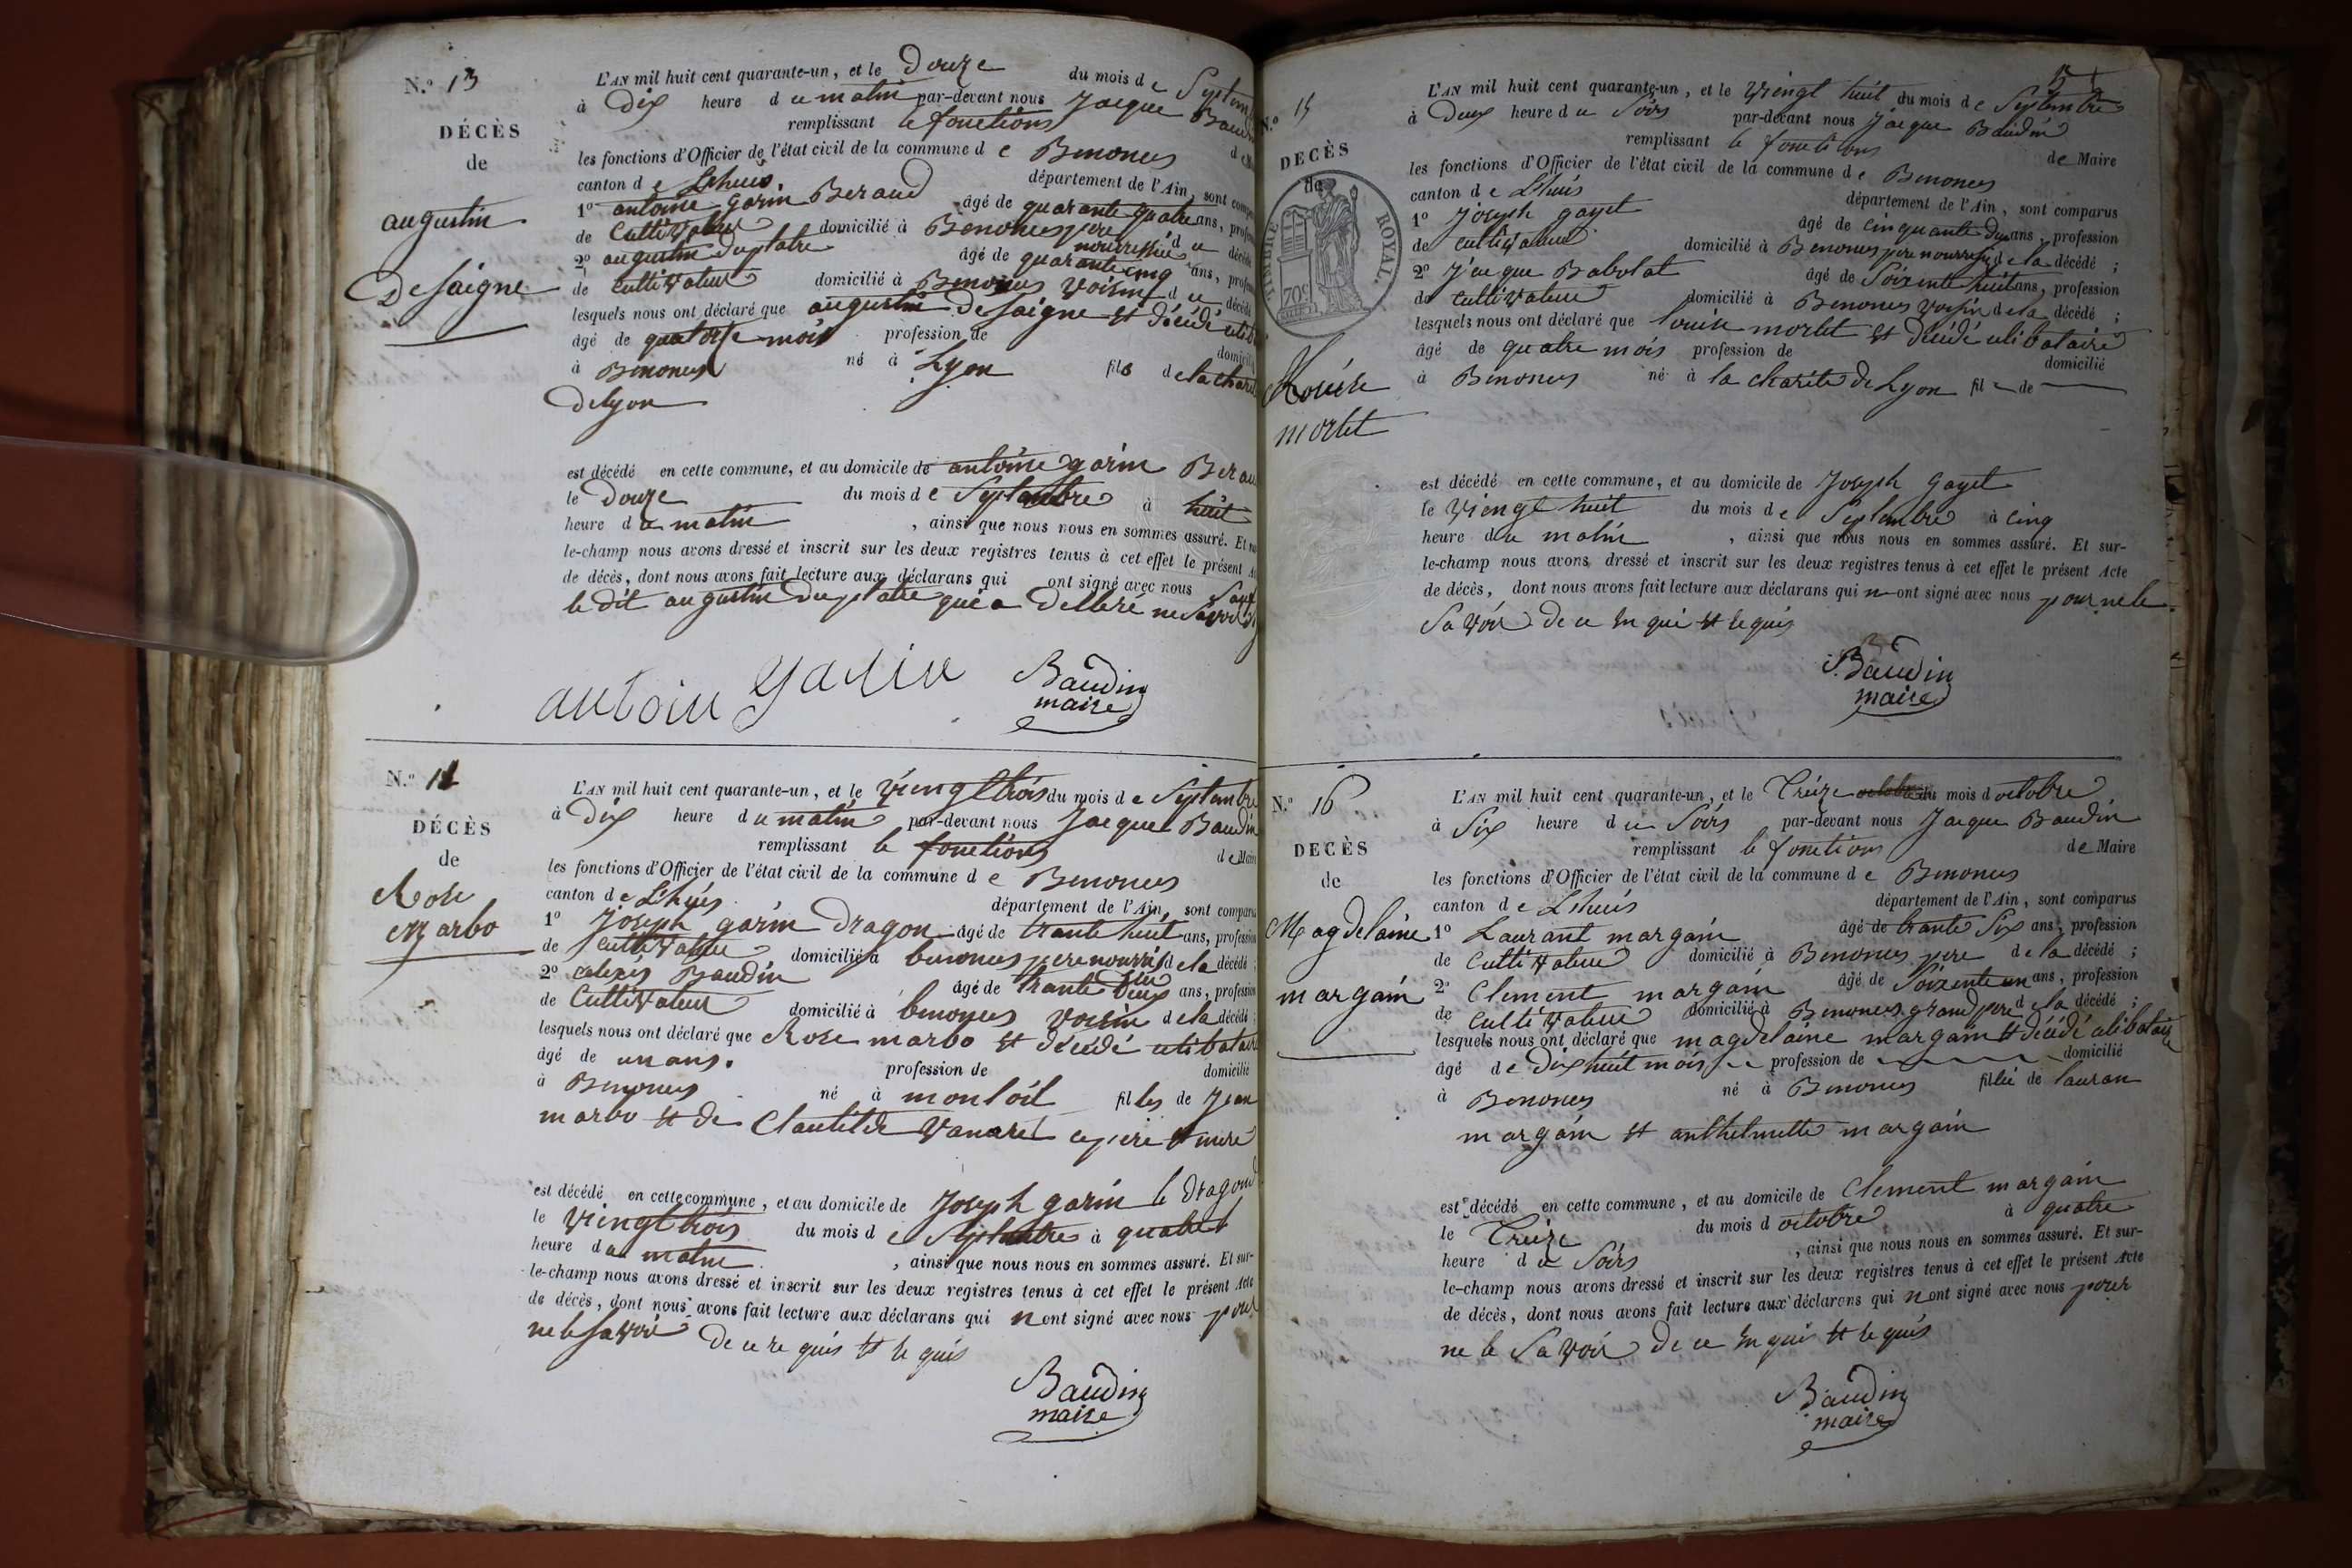 N.º 13
DÉCÈS
de
augustin
Desaigne
L'AN mil huit cent quarante-un, et le Douze du mois de Septem
à Dix heure du matin par-devant nous Jacque Baud
remplissant le fonctions de
les fonctions d'Officier de l'état civil de la commune de Benonces
canton de Lhuis département de l'Ain, sont compa
1º antoine garin Beraud âgé de quarante quatre ans, profes
de Cultivateur domicilié à Benonces pere nourrissie du décédé
2º augustin duplatre âgé de quarante cinq ans, profes
de Cultivateur domicilié à Benonces voisin du décédé
lesquels nous ont déclaré que augustin Desaigne et décédé celib
âgé de quatorse mois profession de domicilié
à Benonces né à Lyon fils de la charit
de lyon
est décédé en cette commune, et au domicile de antoine garin Berau
le Douze du mois de Septembre à huit
heure du matin , ainsi que nous nous en sommes assuré. Et su
le-champ nous avons dressé et inscrit sur les deux registres tenus à cet effet le présent A
de décès, dont nous avons fait lecture aux déclarans qui ont signé avec nous Sauf
le dit augustin Duplatre qui a Dellere ne Savoir
antoin garin Baudin
maire
N.º 14
DÉCÈS
de
Rose
Marbo
L'AN mil huit cent quarante-un, et le Viengt trois du mois de Septembre
à Dix heure du matin par-devant nous Jacque Baudin
remplissant le fonctions de Maire
les fonctions d'Officier de l'état civil de la commune de Benonces
canton de Lhuis département de l'Ain, sont comparus
1º Joseph garin Dragon âgé de trante huit ans, profession
de Cultivateur domicilié à benonces pere nourrisie de la décédé ;
2º alexis Baudin âgé de trante Deux ans, profession
de Cultivateur domicilié à benonces voisin de la décédé ;
lesquels nous ont déclaré que Rose marbo et décédé celibataire
âgé de un ans. profession de domicilié
à Benonces né à montoil filles de Jean
marbo et de Clautilde Vanarel ce pere et mere
est décédé en cette commune, et au domicile de Joseph garin le dragond
le viengt trois du mois de Septembre à quatre
heure du matin , ainsi que nous nous en sommes assuré. Et sur-
le-champ nous avons dressé et inscrit sur les deux registres tenus à cet effet le présent Acte
de décès, dont nous avons fait lecture aux déclarans qui n ont signé avec nous pour
ne le savoir De ce re quis et le quis
Baudin
maire
N.º 15
DÉCÈS
de
TIMBRE ROYAL
70c
Louise
morlet
L'AN mil huit cent quarante-un, et le Viengt huit du mois de Septembre
à Deux heure du Soirs par-devant nous Jacque Baudin
remplissant le fonctions de Maire
les fonctions d'Officier de l'état civil de la commune de Benonces
canton de Lhuis département de l'Ain, sont comparus
1º Joseph gayet âgé de cinquante Deux ans, profession
de cultivateur domicilié à Benonces pere nourrisie de la décédé ;
2º Jacque Babolat âgé de Soixente huit ans, profession
de Cultivateur domicilié à Benonces voisin de la décédé ;
lesquels nous ont déclaré que louise morlet et décédé celibataire
âgé de quatre mois profession de domicilié
à Benonces né à la charite de Lyon fil de
est décédé en cette commune, et au domicile de Joseph gayet
le viengt huit du mois de Septembre à cinq
heure du matin , ainsi que nous nous en sommes assuré. Et sur-
le-champ nous avons dressé et inscrit sur les deux registres tenus à cet effet le présent Acte
de décès, dont nous avons fait lecture aux déclarans qui n ont signé avec nous pour ne le
Savoir de ce en qui et le quis
Baudin
maire
N.º 16
DÉCÈS
de
Magdelaine
margain
L'AN mil huit cent quarante-un, et le Treize octobre du mois d octobre
à Six heure du Soirs par-devant nous Jacque Baudin
remplissant le fonctions de Maire
les fonctions d'Officier de l'état civil de la commune de Benonces
canton de Lhuis département de l'Ain, sont comparus
1º Laurant margain âgé de trante Six ans, profession
de Cultivateur domicilié à Benonces pere de la décédé ;
2º Clement margain âgé de Soixente un ans, profession
de Cultivateur domicilié à Benonces grand pere de la décédé ;
lesquels nous ont déclaré que magdelaine margain et décédé celibataire
âgé de Dix huit mois profession de domicilié
à Benonces né à Benonces fille de lauran
margain et anthelmette margain
est décédé en cette commune, et au domicile de Clement margain
le Treize du mois d octobre à quatre
heure du Soirs , ainsi que nous nous en sommes assuré. Et sur-
le-champ nous avons dressé et inscrit sur les deux registres tenus à cet effet le présent Acte
de décès, dont nous avons fait lecture aux déclarans qui n ont signé avec nous pour
ne le Savoir de ce en quis et le quis
Baudin
maire